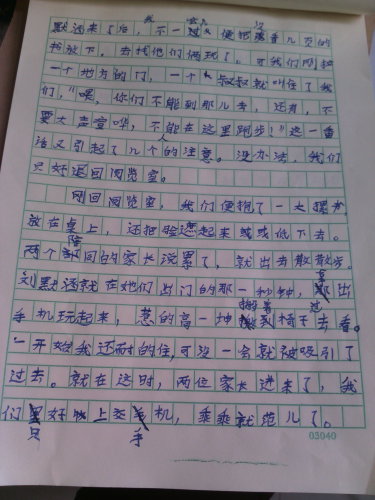 默涵来了后，不一会儿便把没看几页的
书放下，去找他们俩玩了。可我们刚护
一个地方的门，一个叔叔就叫住了我
们，"喂，你们不能到那儿去，还有，不
要大声喧哗，不能在这里跑步！"这一番
话又引起了几个人的注意。没办法，我们
只好退回阅览室。
刚回阅览室，我们便抱了一大摞书，
放在桌上，还把脸遮起来或低下去。
两个陪同的家长说累了，就出去散散步。
刘默涵就在她们出门的那一秒钟，拿出
手机玩起来，惹的高一坤
去看。
一开始我还耐的住，可没一会就被吸引了
过去。就在这时，两位家长进来了，我
们只好上交手机，乖乖就范儿了。
03040